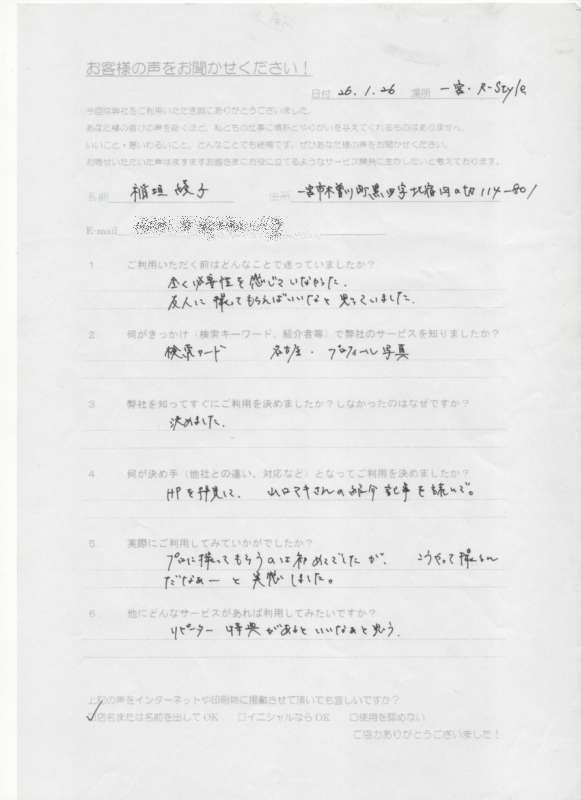 お客様の声をお聞かせください！
日付 26.1.26 場所 一宮・R-Style
今回は弊社をご利用いただき誠にありがとうございました。
あなた様の喜びの声を頂くほど、私どもの仕事に情熱とやりがいを与えてくれるものはありません。
いいこと・悪いわるいこと、どんなことでも結構です。ぜひあなた様の声をお聞かせください。
お寄せいただいた声はますますお客さまにお役に立てるようなサービス開発に生かしたいと考えております。
名前 稲垣 子 住所 一宮市木曽川町黒田字北宿 114-801
E-mail
1 ご利用いただく前はどんなことで迷っていましたか？
全く必要性を感じていなかった。
友人に撮ってもらえばいいなと思っていました。
2 何がきっかけ（検索キーワード、紹介者等）で弊社のサービスを知りましたか？
検索ワード 名古屋・プロフィール写真
3 弊社を知ってすぐにご利用を決めましたか？しなかったのはなぜですか？
決めました。
4 何が決め手（他社との違い、対応など）となってご利用を決めましたか？
HPを拝見して、山口マキさんの紹介記事を読んで。
5 実際にご利用してみていかがでしたか？
プロに撮ってもらうのは初めてでしたが、こうやって撮るん
だなぁーと実感しました。
6 他にどんなサービスがあれば利用してみたいですか？
リピーター特典があるといいなぁと思う。
上記の声をインターネットや印刷物に掲載させて頂いても宜しいですか？
☑店名または名前を出してOK □イニシャルならOK □使用を認めない
ご協力ありがとうございました！